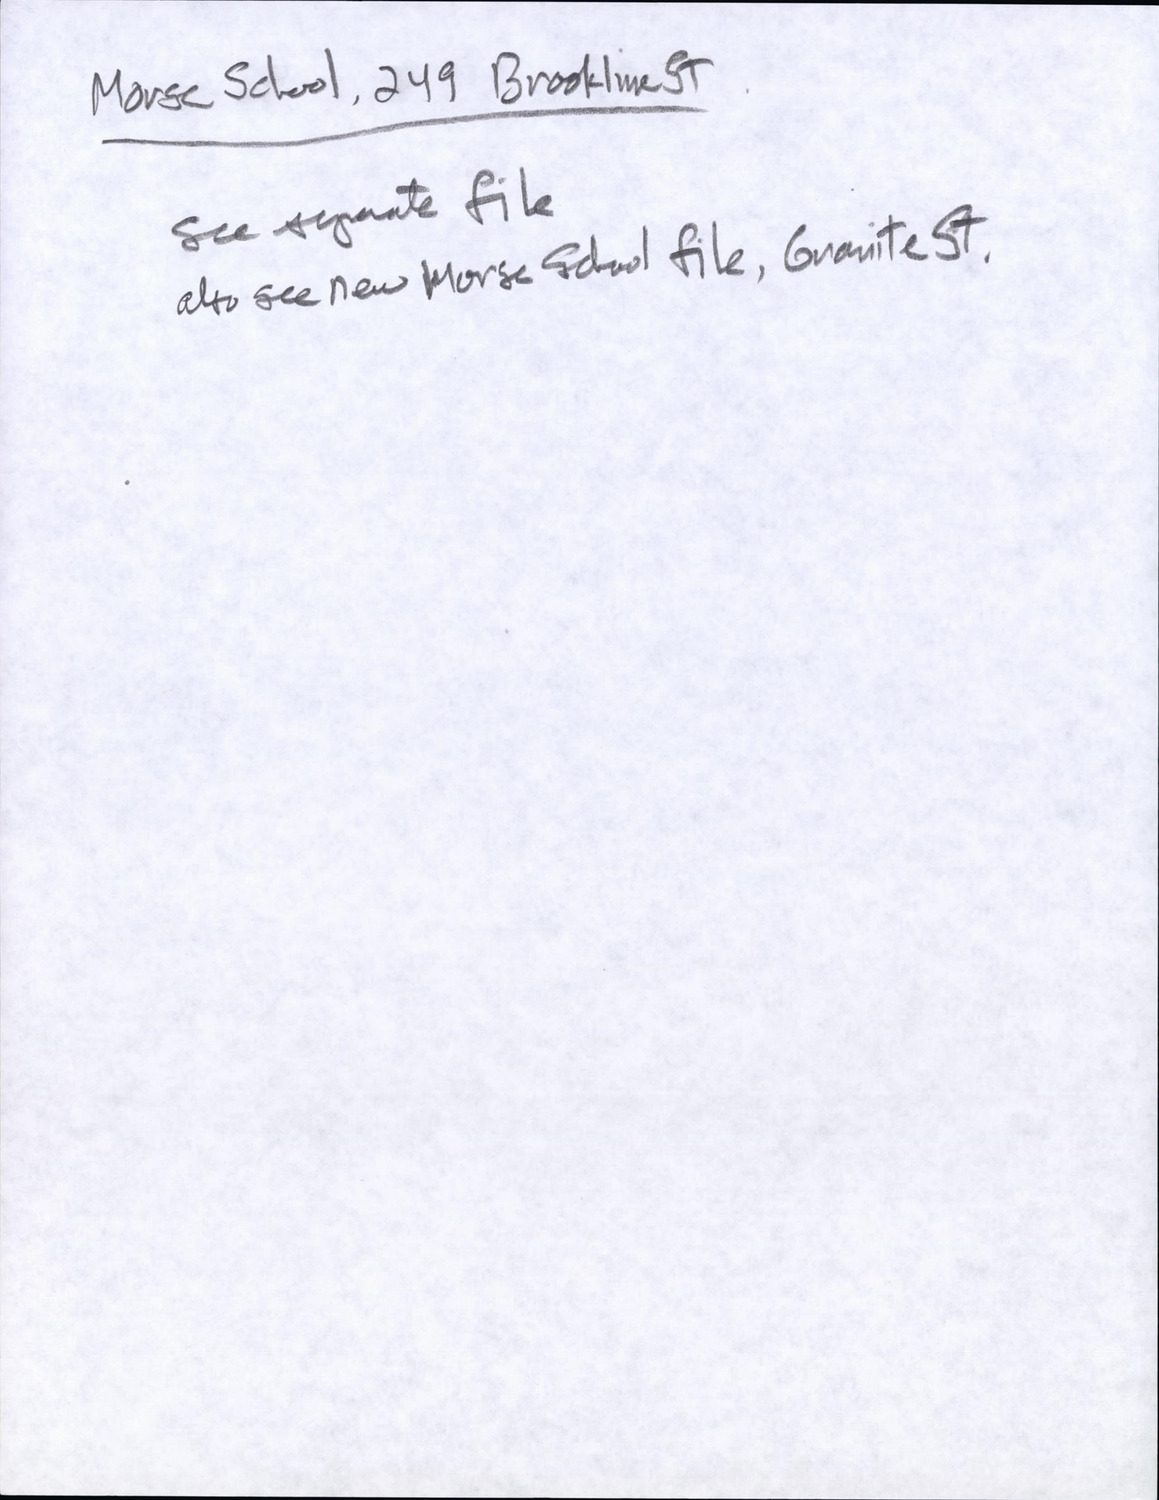 Morse School, 249 Brookline St
see separate file
also see new Morse School file, Granite St.